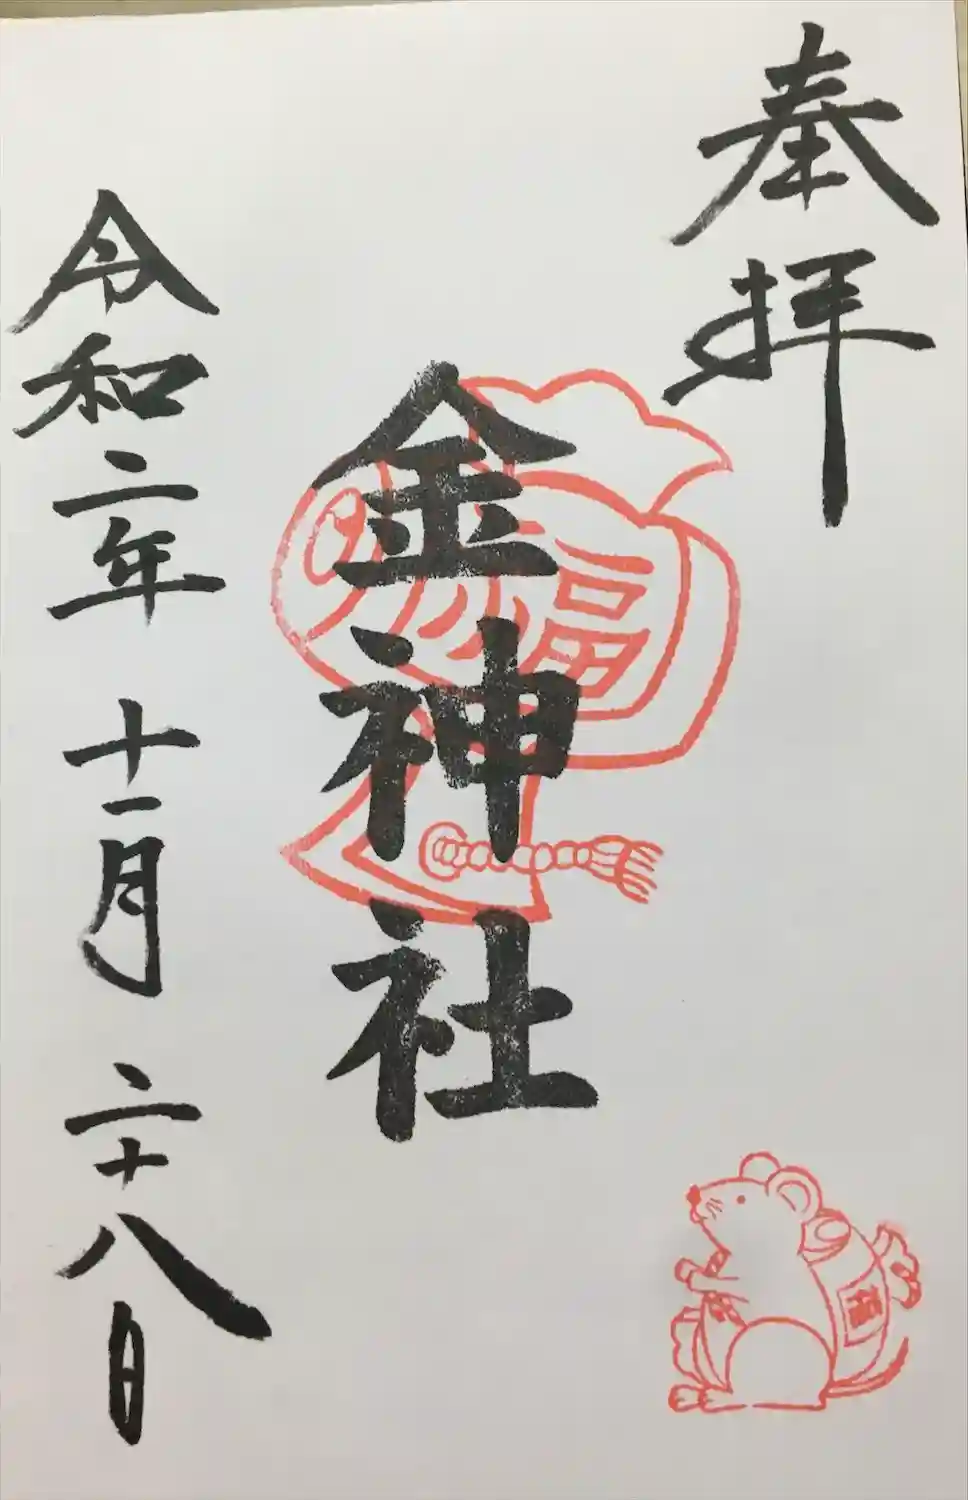 奉拝
金神社
福
令和二年十一月二十八日